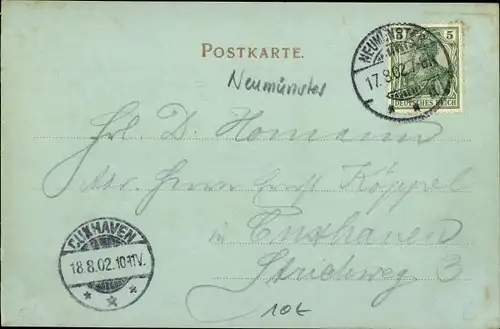 POSTKARTE.
NEUMÜNSTER
17.8.02.7-8N.
5
DEUTSCHES REICH
Neumünster
Frl. D. Homann
Adr. Herrn Ernst Köppel
in Cuxhaven
Strichweg 3
CUXHAVEN
18.8.02.10-11V.
10€